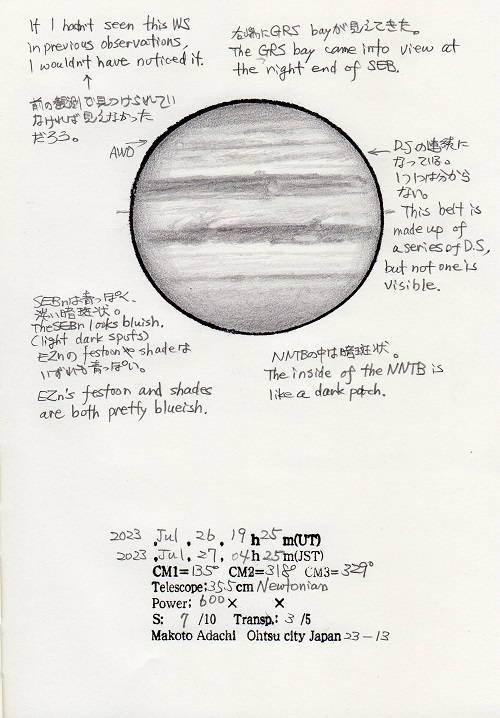 If I hadn't seen this WS
in previous observations,
I wouldn't have noticed it.
前の観測で見つけられてい
なければ見えなかった
だろう。
AWO
右端にGRS bayが見えてきた。
The GRS bay came into view at
the right end of SEB.
D.Sの連続に
なっている。
1つ1つは分から
ない。
This belt is
made up of
a series of D.S,
but not one is
visible.
SEBnは青っぽく、
淡い暗斑状。
The SEBn looks bluish.
(light dark spots)
EZnのfestoonやshadeは
いずれも青っぽい。
EZn's festoon and shades
are both pretty blueish.
NNTBの中は暗斑状。
The inside of the NNTB is
like a dark patch.
2023 . Jul . 26 . 19 h 25 m(UT)
2023 . Jul . 27 . 04 h 25 m(JST)
CM1=135° CM2=318° CM3=329°
Telescope:35.5cm Newtonian
Power: 600× ×
S: 7 /10 Transp.: 3 /5
Makoto Adachi Ohtsu city Japan 23-13